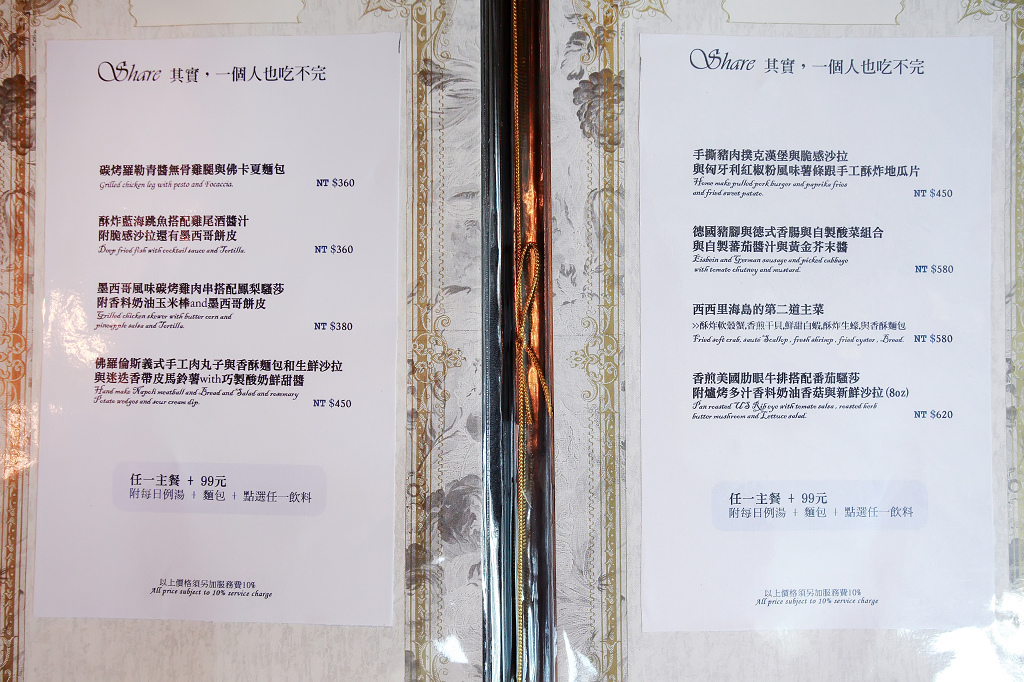 Share 其實，一個人也吃不完
碳烤羅勒青醬無骨雞腿與佛卡夏麵包
Grilled chicken leg with pesto and Focaccia.
NT $360
酥炸藍海跳魚搭配雞尾酒醬汁
附脆感沙拉還有墨西哥餅皮
Deep fried fish with cocktail sauce and Tortilla.
NT $360
墨西哥風味碳烤雞肉串搭配鳳梨騷莎
附香料奶油玉米棒and墨西哥餅皮
Grilled chicken skewer with butter corn and
pineapple salsa and Tortilla.
NT $380
佛羅倫斯義式手工肉丸子與香酥麵包和生鮮沙拉
與迷迭香帶皮馬鈴薯with巧製酸奶鮮甜醬
Hand make Napoli meatball and Bread and Salad and rosemary
Potato wedges and sour cream dip.
NT $450
任一主餐 + 99元
附每日例湯 + 麵包 + 點選任一飲料
以上價格須另加服務費10%
All price subject to 10% service charge
Share 其實，一個人也吃不完
手撕豬肉撲克漢堡與脆感沙拉
與匈牙利紅椒粉風味薯條跟手工酥炸地瓜片
Home make pulled pork burger and paprika fries
and fried sweet potato.
NT $450
德國豬腳與德式香腸與自製酸菜組合
與自製蕃茄醬汁與黃金芥末醬
Eisbein and German sausage and picked cabbage
with tomato chutney and mustard.
NT $580
西西里海島的第二道主菜
>>酥炸軟殼蟹,香煎干貝,鮮甜白蝦,酥炸生蠔,與香酥麵包
Fried soft crab, sauté Scallop , fresh shrimp , fried oyster , Bread.
NT $580
香煎美國肋眼牛排搭配番茄騷莎
附爐烤多汁香料奶油香菇與新鮮沙拉(8oz)
Pan roasted US Rib eye with tomato salsa , roasted herb
butter mushroom and Lettuce salad.
NT $620
任一主餐 + 99元
附每日例湯 + 麵包 + 點選任一飲料
以上價格須另加服務費10%
All price subject to 10% service charge